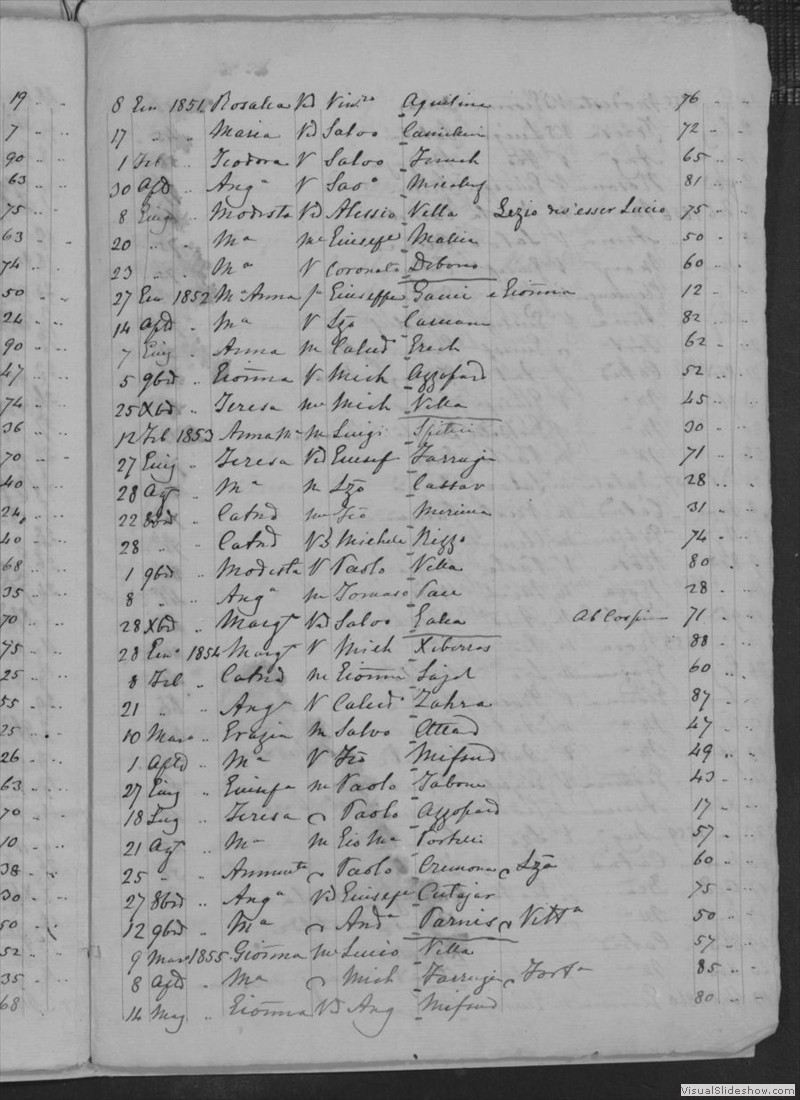 19
7
90
63
75
63
74
50
24
90
47
74
36
70
40
24
40
68
35
70
75
25
55
25
26
63
70
10
38
30
50
52
35
68
8 1851 Rosalea Vd Vin Agostina 76
17 " " Maria Vd Salvo Camilleri 72
1 Feb " Teodora V Salvo Zerach 65
30 Ap " Angª V Sao Micalef 81
8 " Modesta Vd Alessio Vella Lezio dev'esser Lucio 75
20 " " Mª m Giuseppe Mallia 50
23 " " Mª V Coronato Debono 60
27 Gen 1852 Mª Anna f Giuseppe Gauci e Gionna 12
14 " Mª V Lzo Caruana 82
7 Giug " Anna m Calcd Grech 62
5 9bre " Gionna V Mich Azzopard 52
25 Xbre " Teresa m Mich Vella 45
12 Feb 1853 Anna Mª m Luigi Spiteri 30
27 Giug " Teresa Vd Giusep Farrugia 71
28 Ag " Mª m Lzo Cassar 28
22 8bre " Catnd m Gio 31
28 " " Catnd Vd Michele Rizzo 74
1 9bre " Modesta V Paolo Vella 80
8 " " Angª m Tomaso Pace 28
28 Xbre " Margª Vd Salvo Galea 71
28 Genº 1854 Margª V Mich Xiberras 88
8 Feb " Catnd m Gionni Said 60
21 " " Angª V Calcd Zahra 87
10 Marzo " Grazia m Salvo Attard 47
1 " Mª V Mifsud 49
27 Giug " Giusepa m Paolo Tabone 43
18 Lug " Teresa Paolo Azzopard 17
21 Agt " Mª m Gio Mª Portelli 57
25 " Annunta Paolo Cremona Lza 60
27 8bre " Angª Vd Giusepe Cutajar 75
12 9bre " Mª Andª Parnis Vittª 50
9 Marz 1855 Gionna m Lucio Vella 57
8 " Mª Mich Farrugia Fortª 85
14 Mag " Gionna Vd Ang Mifsud 80
VisualSlideshow.com